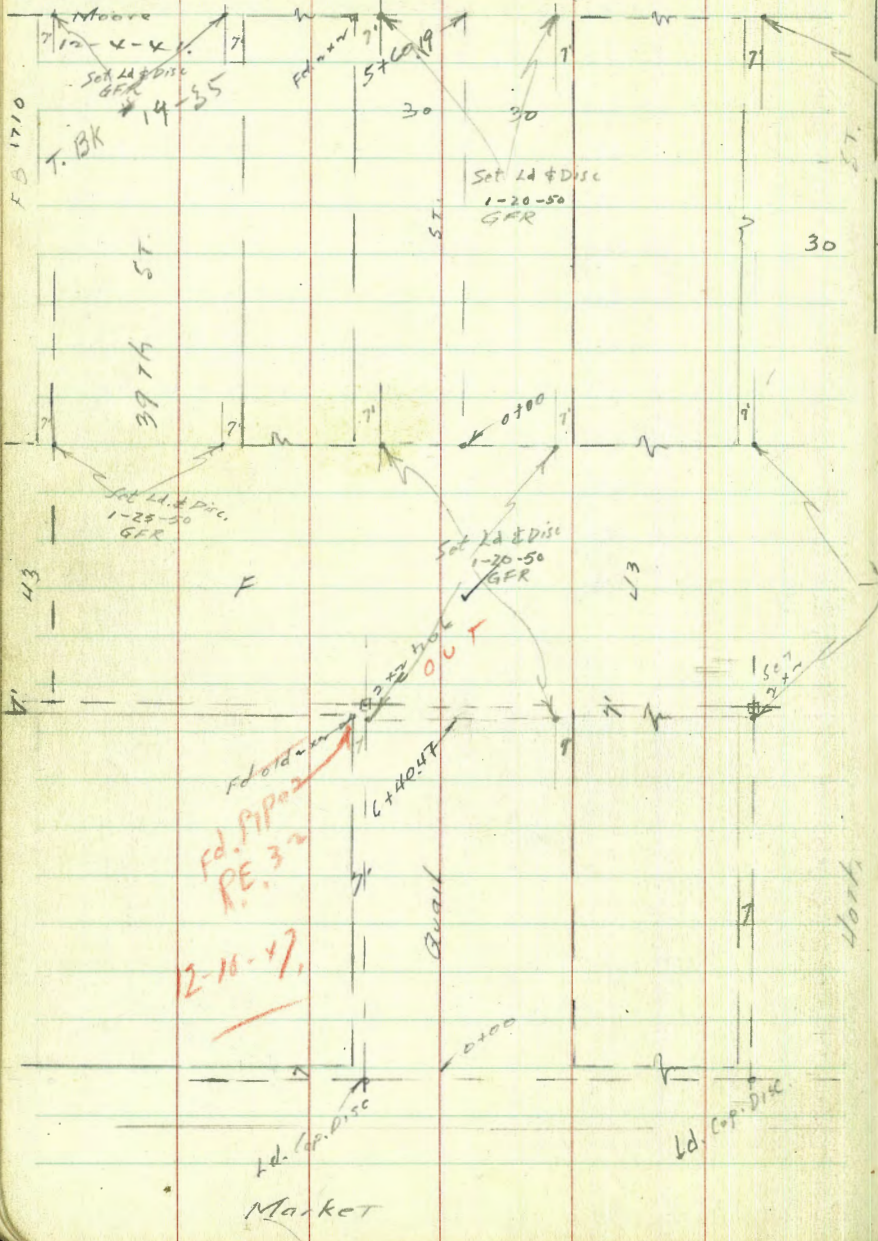 Moore
7'
12-4-41.
7'
Set Ld & Disc
GFR
14-35
T. BK
FB 1710
Fd. 2x2
7'
5+60.19
7'
7'
30
30
Set Ld & Disc
1-20-50
GFR
ST.
ST.
30
39th ST.
7'
7'
7'
0+00
7'
7'
Set Ld. & Disc.
1-25-50
GFR
Set Ld & Disc
1-20-50
GFR
43
F
43
2x2
OUT
Set
2x2
7'
7'
Fd old 2x2
6+40.47
Fd. Pipe
R.E. 32
12-10-47.
7'
Quail
7
0+00
7
Ld. Cop. Disc
Ld. Cop. Disc
Market